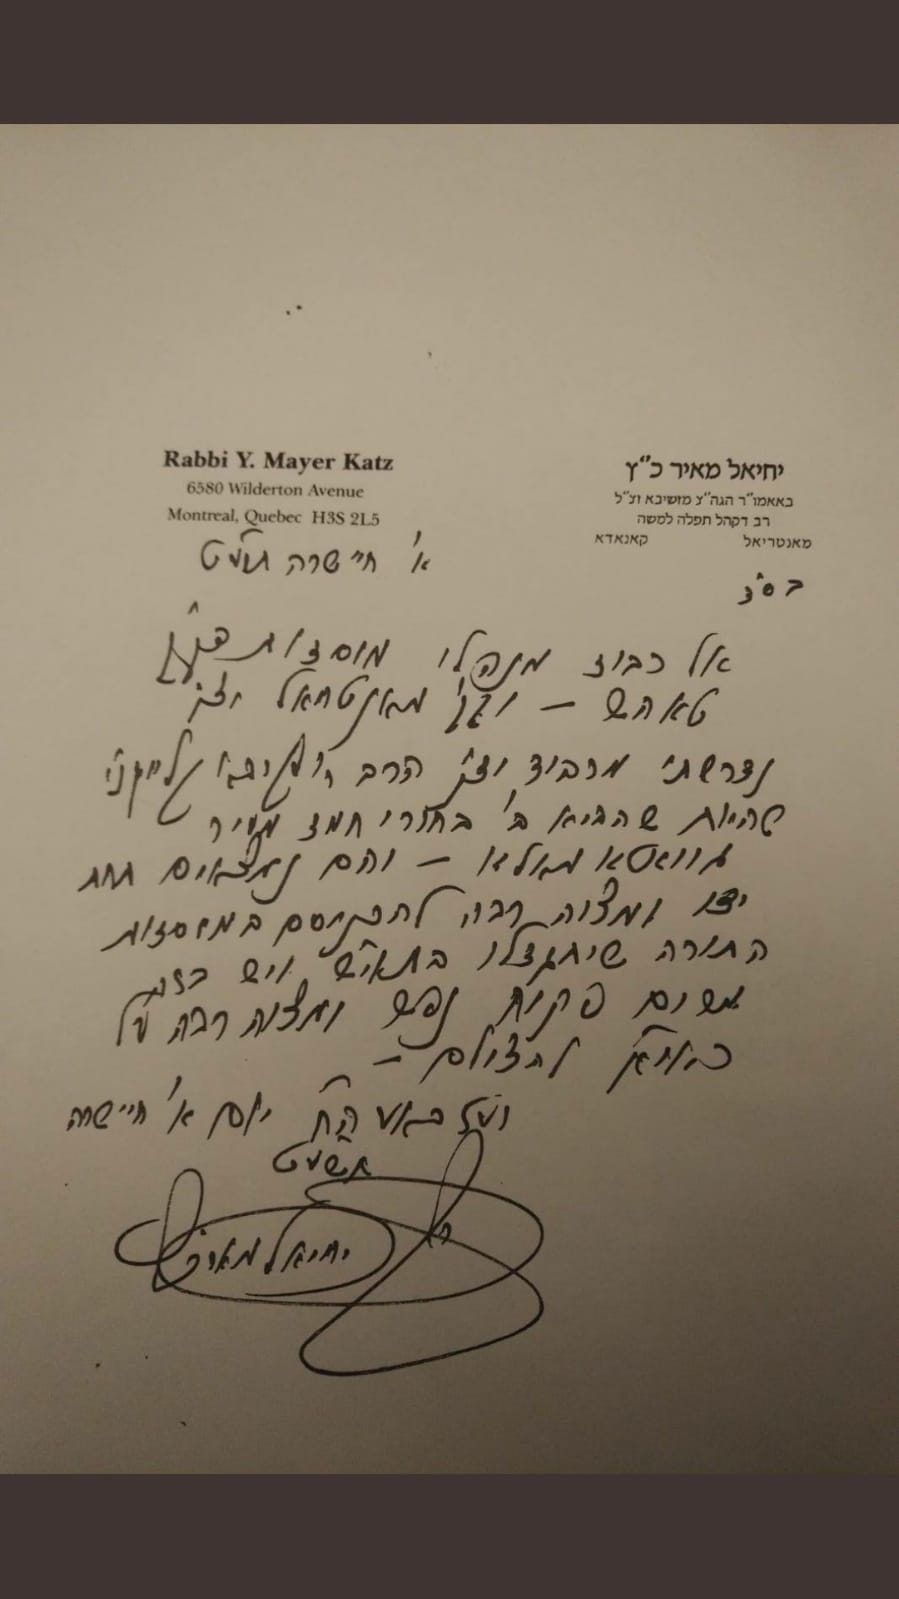 Rabbi Y. Mayer Katz
6580 Wilderton Avenue
Montreal, Quebec H3S 2L5
יחיאל מאיר כ"ץ
באאמו"ר הגה"צ מזשיבא זצ"ל
רב דקהל תפלה למשה
מאנטריאל קאנאדא
א' חיי שרה תשע"ט
בס"ד
אל כבוד מנהלי מוסדות
טאהש – וגם מאנטריאל
נדרשתי מכבוד הרב
היות שהביא ב' בחורי חמד מעיר
גוואטאמאלא – והם נמצאים תחת
ידו ומצוה רבה להכניסם במוסדות
התורה שיתגדלו בתויר"ש ויש בזה
משום פיקוח נפש ומצוה רבה על
כאו"א להצילם –
ועז באעה"ח יום א' חיי שרה
תשע"ט
יחיאל מאיר כ"ץ